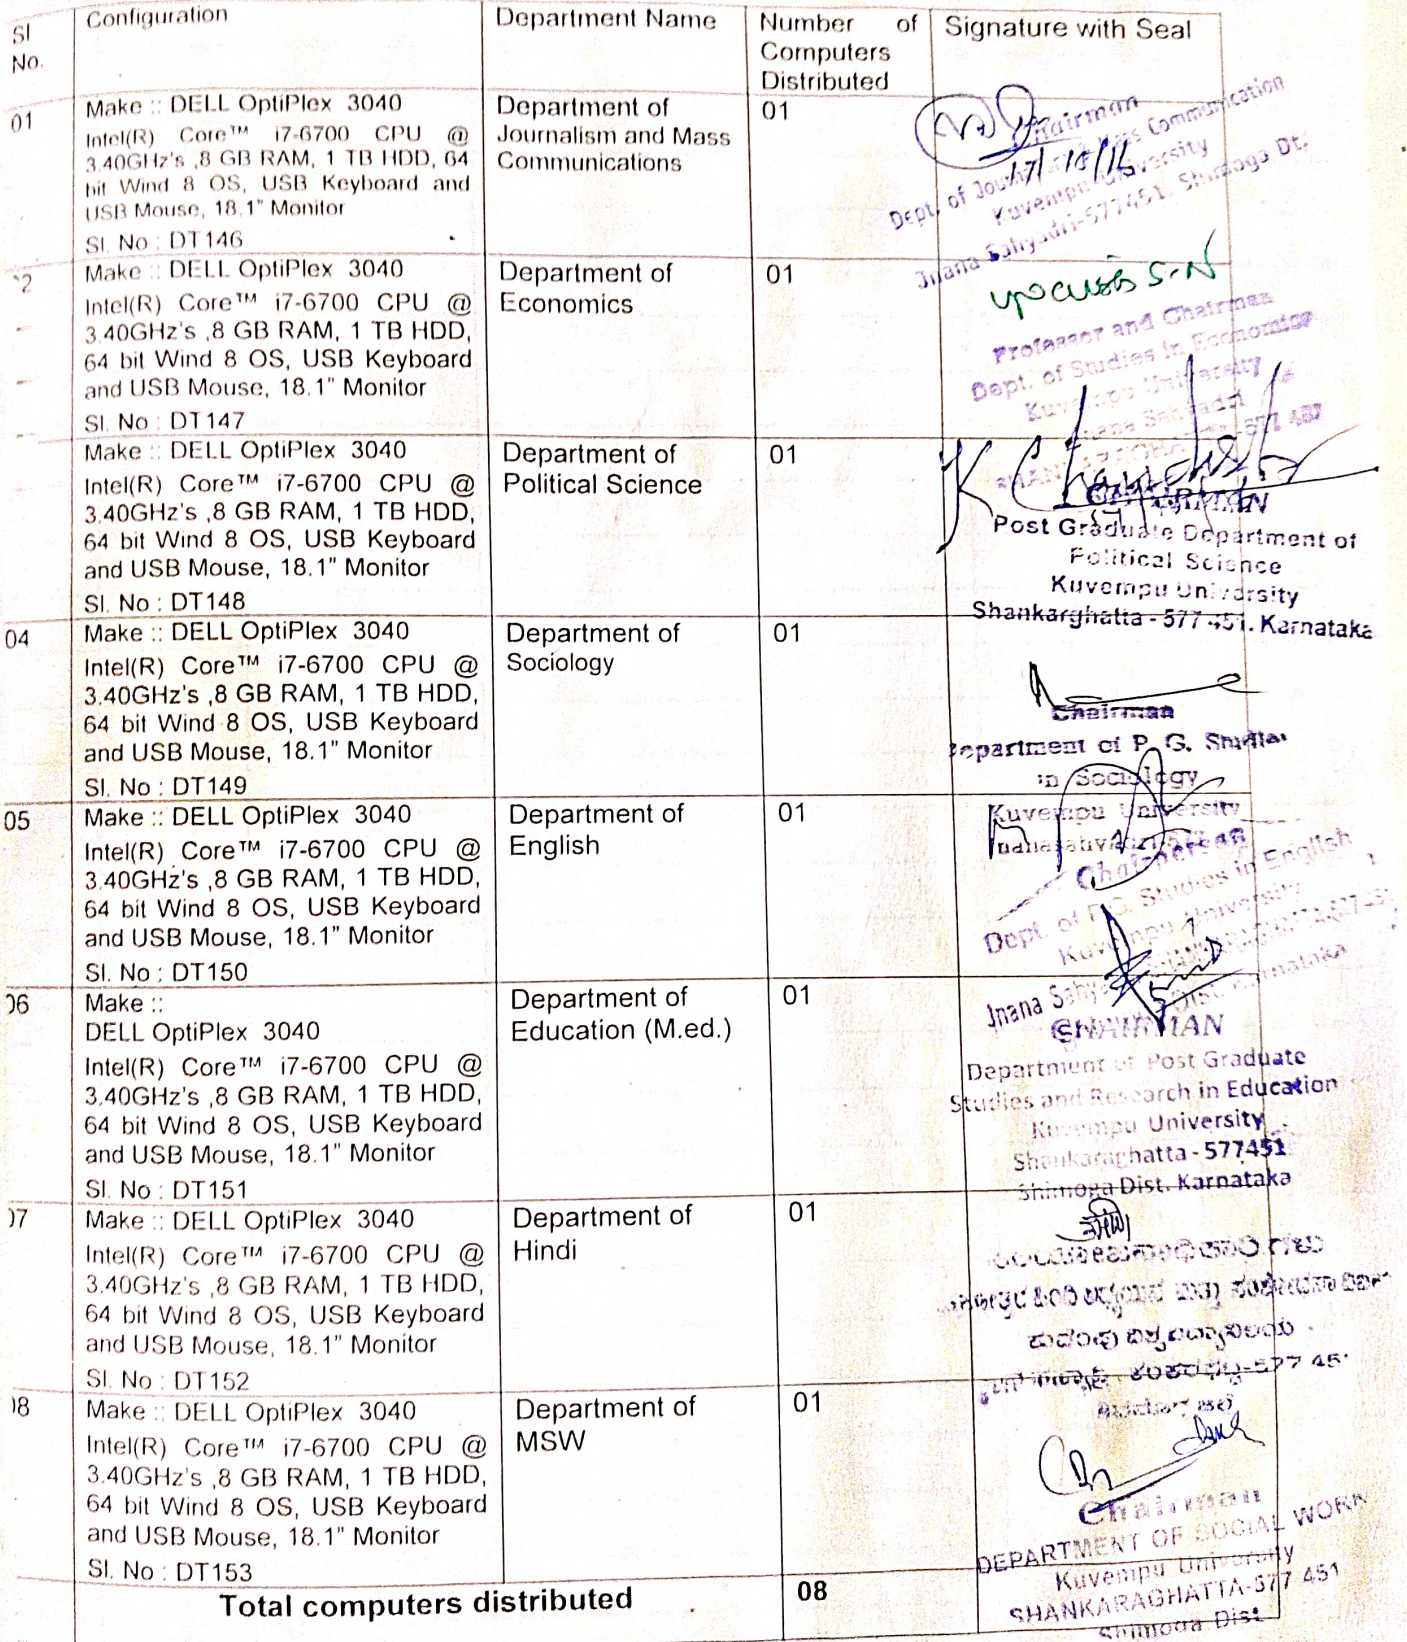 Sl No.
Configuration
Department Name
Number of Computers Distributed
Signature with Seal
01
Make :: DELL OptiPlex 3040
Intel(R) Core™ i7-6700 CPU @
3.40GHz's ,8 GB RAM, 1 TB HDD, 64
bit Wind 8 OS, USB Keyboard and
USB Mouse, 18.1" Monitor
Sl. No : DT146
Department of
Journalism and Mass
Communications
01
Chairman
Dept. of Communication
Kuvempu University
Jnana Sahyadri-577451, Shimoga Dt.
2
Make :: DELL OptiPlex 3040
Intel(R) Core™ i7-6700 CPU @
3.40GHz's ,8 GB RAM, 1 TB HDD,
64 bit Wind 8 OS, USB Keyboard
and USB Mouse, 18.1" Monitor
Sl. No : DT147
Department of
Economics
01
S-N
Professor and Chairman
Dept. of Studies in Economics
Kuvempu University
Make :: DELL OptiPlex 3040
Intel(R) Core™ i7-6700 CPU @
3.40GHz's ,8 GB RAM, 1 TB HDD,
64 bit Wind 8 OS, USB Keyboard
and USB Mouse, 18.1" Monitor
Sl. No : DT148
Department of
Political Science
01
CHAIRMAN
Post Graduate Department of
Political Science
Kuvempu University
Shankarghatta - 577 451. Karnataka
04
Make :: DELL OptiPlex 3040
Intel(R) Core™ i7-6700 CPU @
3.40GHz's ,8 GB RAM, 1 TB HDD,
64 bit Wind 8 OS, USB Keyboard
and USB Mouse, 18.1" Monitor
Sl. No : DT149
Department of
Sociology
01
Chairman
Department of P. G. Studies
in Sociology
Kuvempu University
05
Make :: DELL OptiPlex 3040
Intel(R) Core™ i7-6700 CPU @
3.40GHz's ,8 GB RAM, 1 TB HDD,
64 bit Wind 8 OS, USB Keyboard
and USB Mouse, 18.1" Monitor
Sl. No : DT150
Department of
English
01
Chairperson
Dept. of P.G. Studies in English
Kuvempu University
Jnana Karnataka
06
Make ::
DELL OptiPlex 3040
Intel(R) Core™ i7-6700 CPU @
3.40GHz's ,8 GB RAM, 1 TB HDD,
64 bit Wind 8 OS, USB Keyboard
and USB Mouse, 18.1" Monitor
Sl. No : DT151
Department of
Education (M.ed.)
01
CHAIRMAN
Department of Post Graduate
Studies and Research in Education
Kuvempu University
Shankaraghatta - 577451
Shimoga Dist. Karnataka
07
Make :: DELL OptiPlex 3040
Intel(R) Core™ i7-6700 CPU @
3.40GHz's ,8 GB RAM, 1 TB HDD,
64 bit Wind 8 OS, USB Keyboard
and USB Mouse, 18.1" Monitor
Sl. No : DT152
Department of
Hindi
01
ಕುವೆಂಪು ವಿಶ್ವವಿದ್ಯಾನಿಲಯ
08
Make :: DELL OptiPlex 3040
Intel(R) Core™ i7-6700 CPU @
3.40GHz's ,8 GB RAM, 1 TB HDD,
64 bit Wind 8 OS, USB Keyboard
and USB Mouse, 18.1" Monitor
Sl. No : DT153
Department of
MSW
01
Chairman
DEPARTMENT OF SOCIAL WORK
Kuvempu University
SHANKARAGHATTA-577 451
Shimoga Dist
Total computers distributed
08